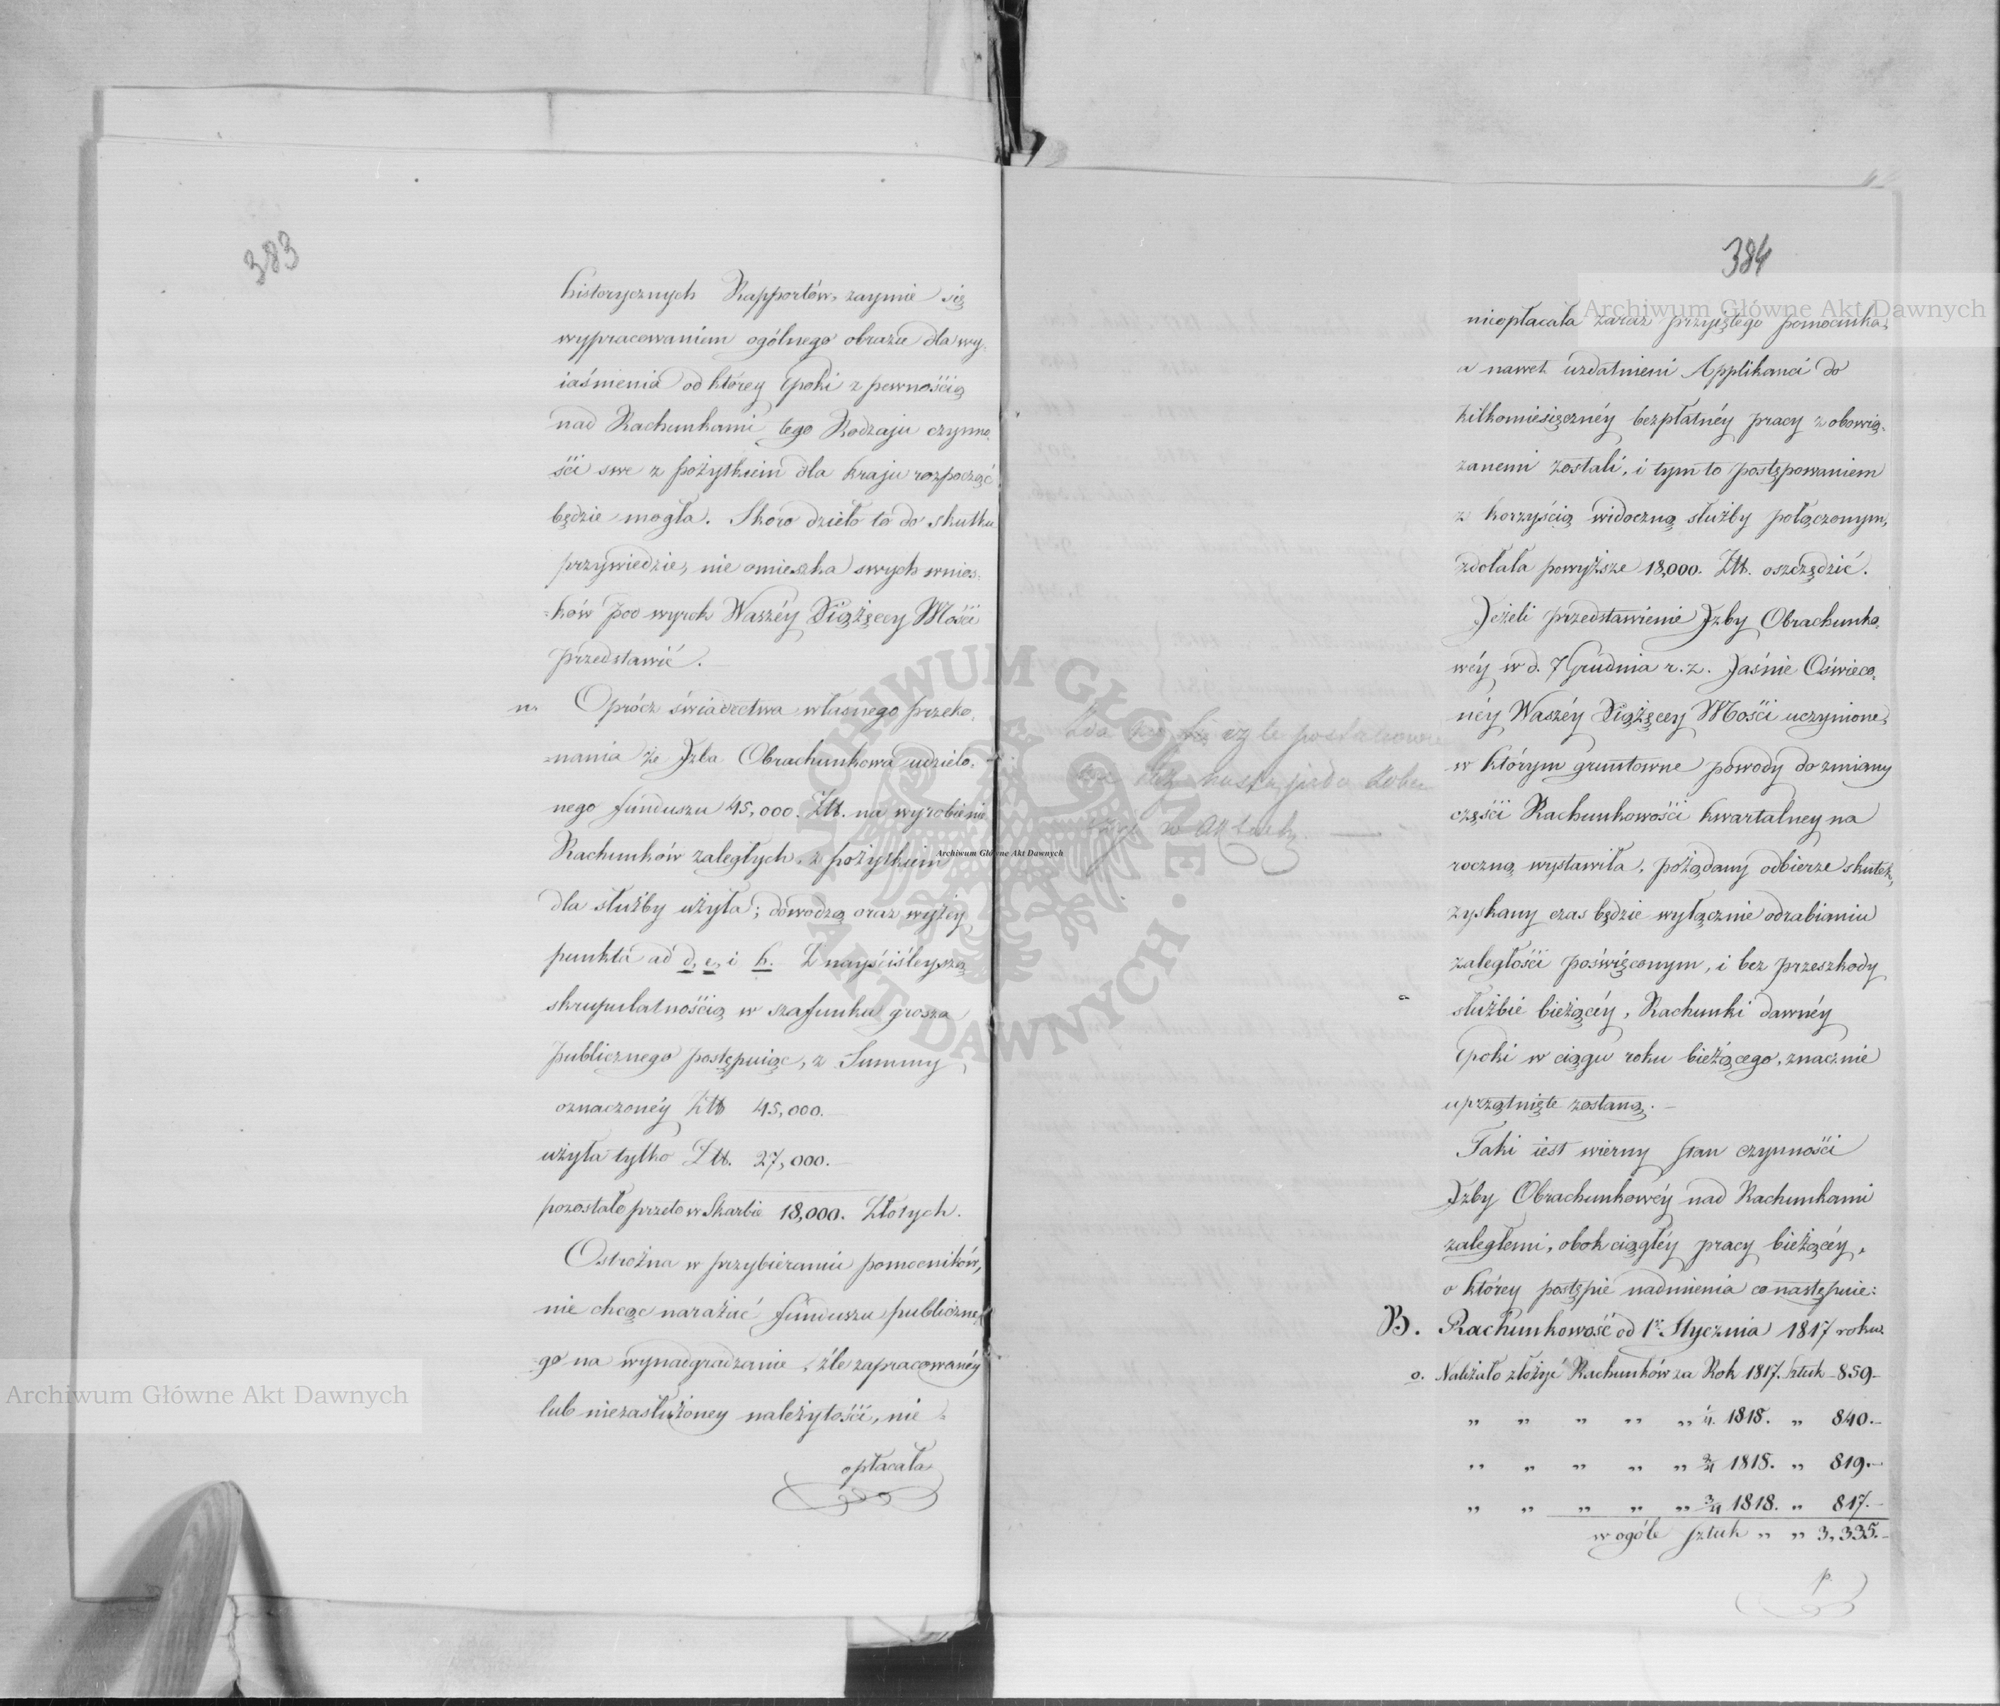 383
historycznych Rapportów, zaymie się
wypracowaniem ogólnego obrazu dla wy,
iaśnienia od którey Epoki z pewnością
nad Rachunkami tego Rodzaju czynno,
ści swe z pożytkiem dla kraju rozpocząć
będzie mogła. Skoro dzieło to do skutku
przywiedzie, nie omieszka swych wnios,
=ków pod wyrok Waszéy Xiążęcey Mości
przedstawić.
n. Oprócz świadectwa własnego przeko,
=nania że Jzba Obrachunkowa udzielo,
nego funduszu 45,000. Złt. na wyrobienie
Rachunków zaległych, z pożytkiem
dla służby użyła; dowodzą oraz wyżéy
punkta ad d, e, i h. Z nayściśleyszą
skrupulatnością w szafunku grosza
publicznego postępuiąc, z Summy
oznaczonéy Złt 45,000.
użyła tylko Złt. 27,000.
pozostało przeto w Skarbie 18,000. Złotych.
Ostrożna w przybieraniu pomocników,
nie chcąc narażać funduszu publiczne,
go na wynadgradzanie, źle zapracowanéy
lub niezasłużoney należytości, nie =
opłacała
384
nieopłacała zaraz przyjętego pomocnika,
a nawet uzdatnieni Applikanci do
kilkomiesięcznéy bezpłatnéy pracy zobowią,
zanemi zostali, i tym to postępowaniem
z korzyścią widoczną służby połączonym,
zdołała powyższe 18,000. Złt. oszczędzić.
Jeżeli przedstawienie Jzby Obrachunko,
wéy w d. 7 Grudnia r. z. Jaśnie Oświeco,
néy Waszéy Xiążęcey Mości uczynione,
w którym gruntowne powody do zmiany
części Rachunkowości kwartalney na
roczną wystawiła, pożądany odbierze skutek,
zyskany czas będzie wyłącznie odrabianiu
zaległości poświęconym, i bez przeszkody
służbie bieżącéy, Rachunki dawnéy
Epoki w ciągu roku bieżącego, znacznie
uprzątnięte zostaną.
Taki iest wierny stan czynności
Jzby Obrachunkowéy nad Rachunkami
zaległemi, obok ciągłéy pracy bieżącéy,
o którey postępie nadmienia co następuie:
B. Rachunkowość od 1go Stycznia 1817 roku.
o. Należało złożyć Rachunków za Rok 1817. sztuk 859.
„ „ „ „ „ 1/4. 1818. „ 840.
„ „ „ „ „ 2/4 1818. „ 819.
„ „ „ „ „ 3/4 1818. „ 817.
w ogóle sztuk „ „ 3,335.
p.
czy te
w
Archiwum Główne Akt Dawnych
Archiwum Główne Akt Dawnych
Archiwum Główne Akt Dawnych
ARCHIWUM GŁÓWNE AKT DAWNYCH